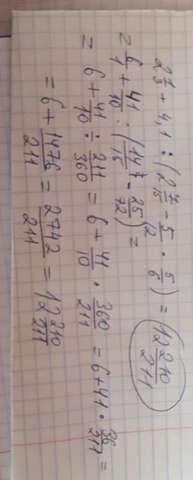 + 4,1 : (2 7/15 - 5/12 · 5/6) = 12 210/211
= 6/1 + 41/10 : (14/15 - 25/72) =
= 6 + 41/10 : 211/360 = 6 + 41/10 · 360/211 = 6 + 41 · 36/211 =
= 6 + 1476/211 = 2742/211 = 12 210/211